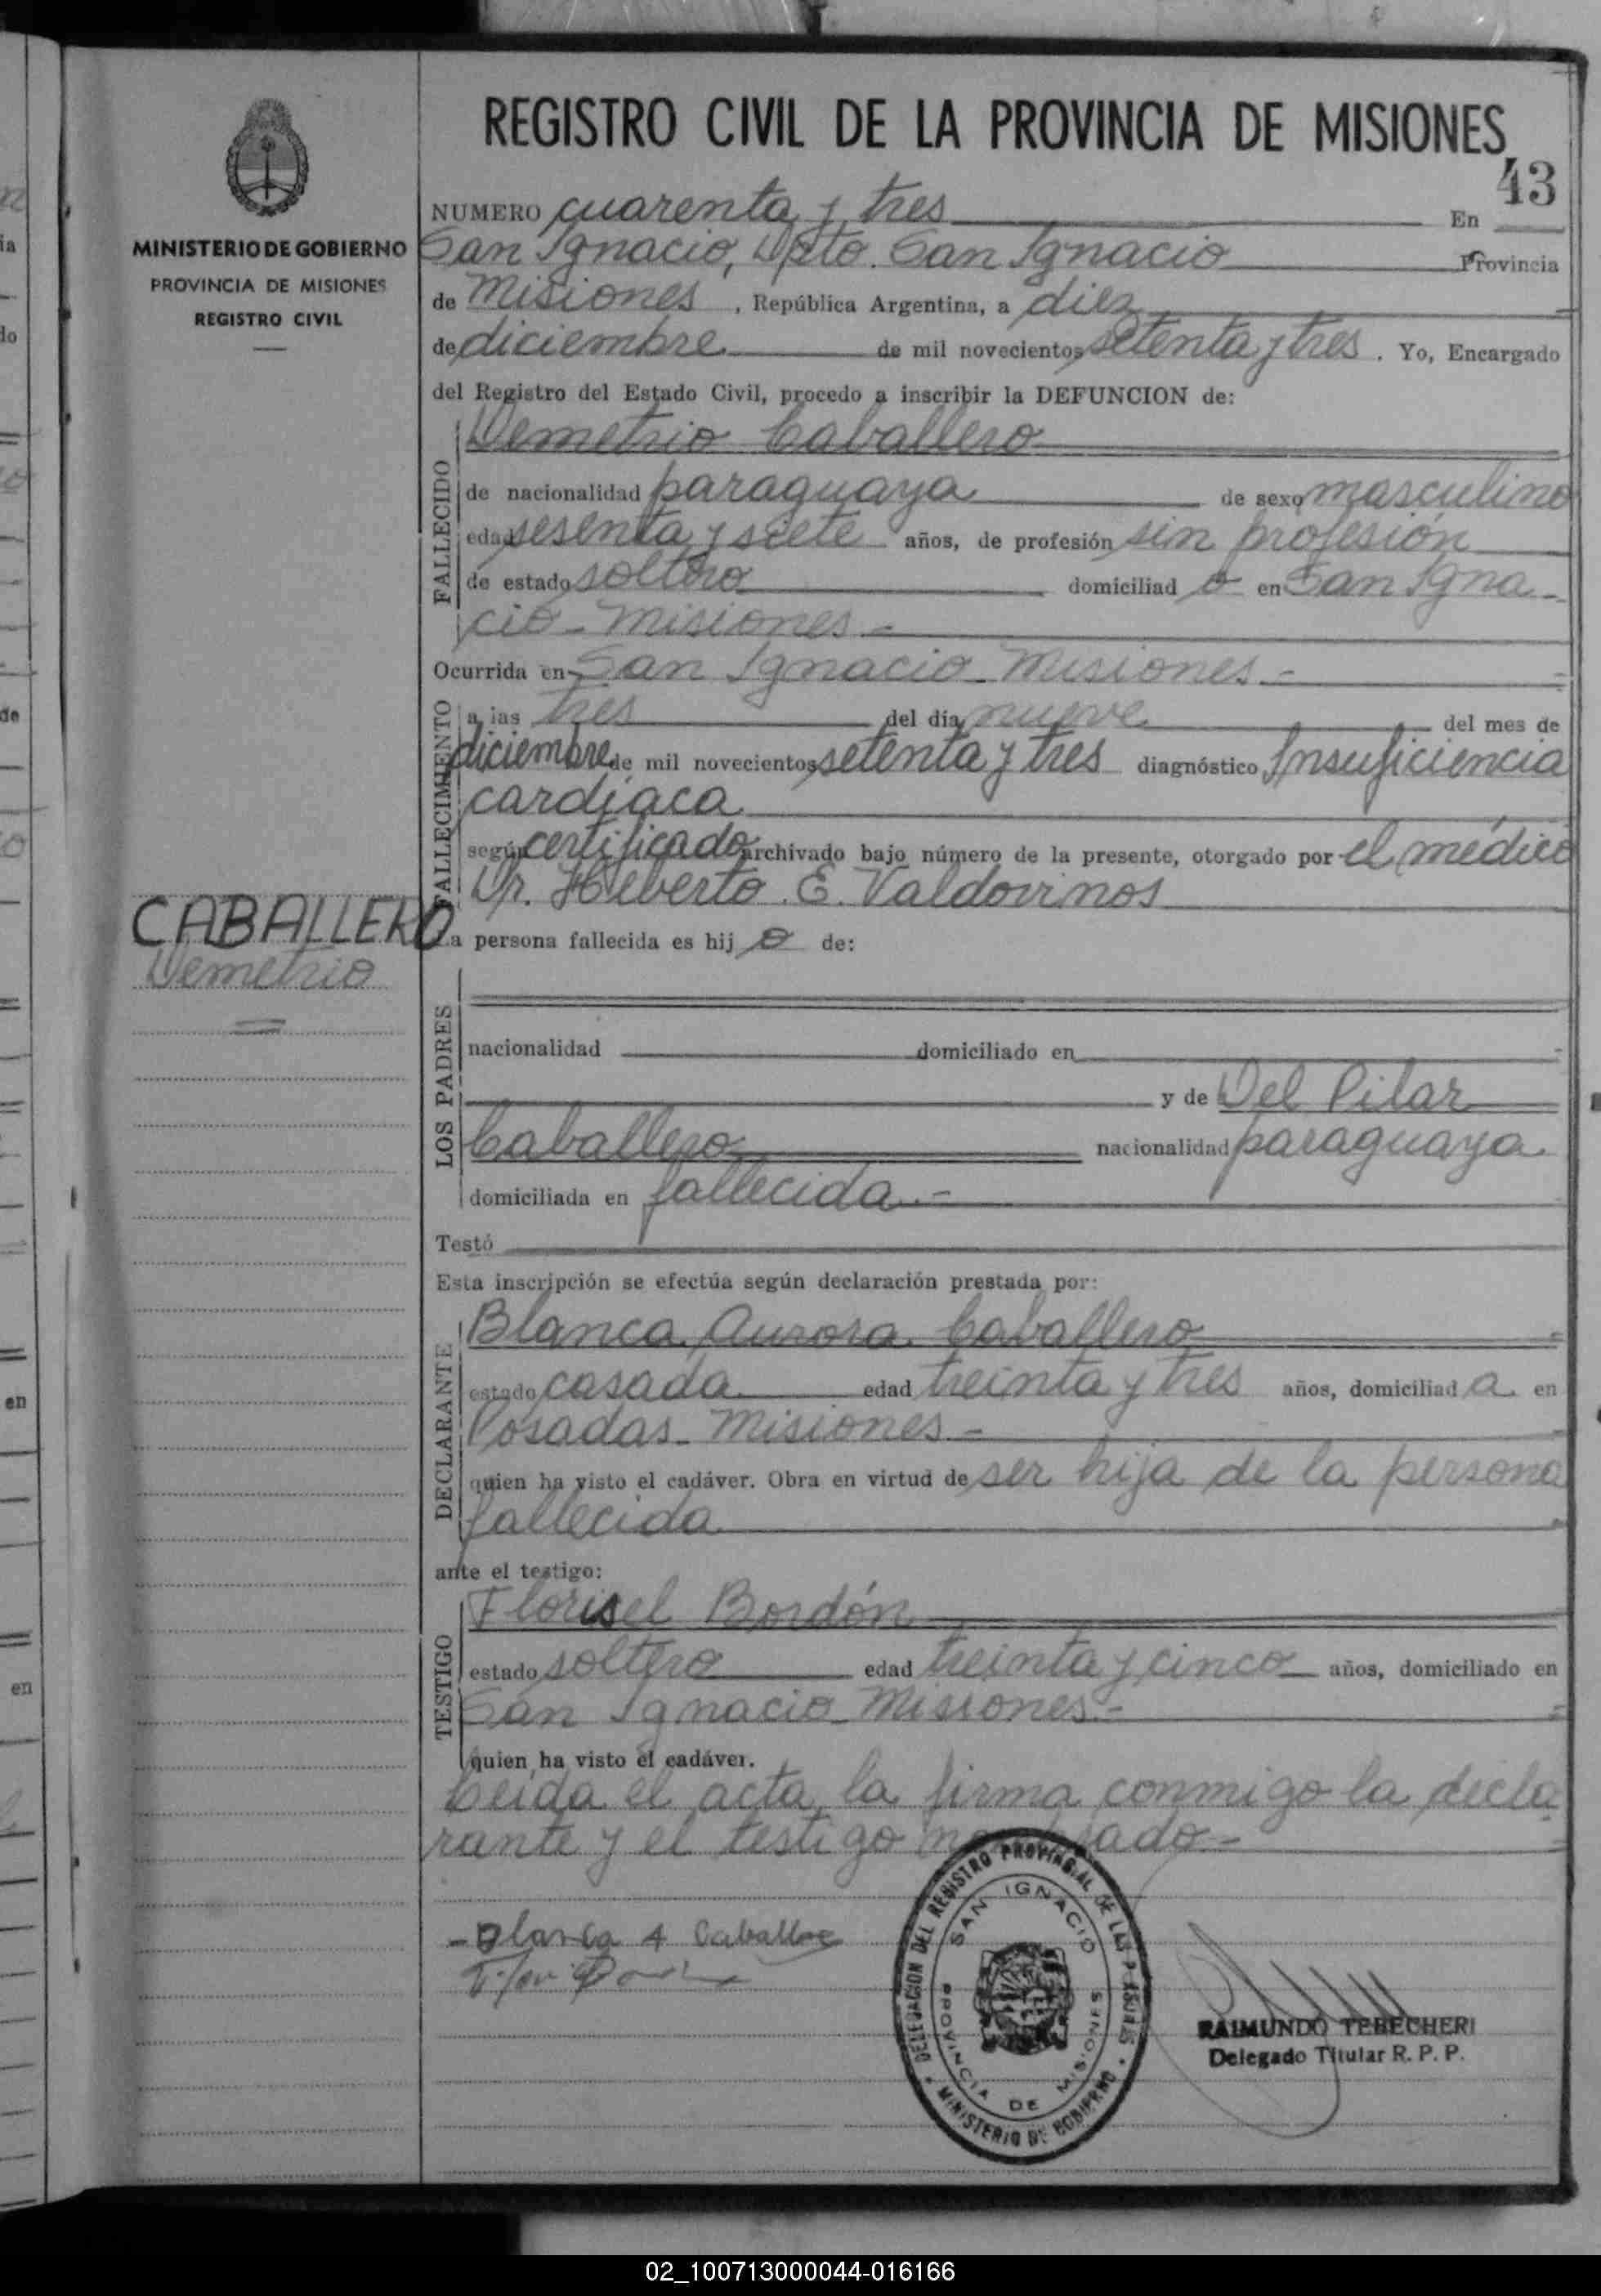 REGISTRO CIVIL DE LA PROVINCIA DE MISIONES
43
MINISTERIO DE GOBIERNO
PROVINCIA DE MISIONES
REGISTRO CIVIL
NUMERO cuarenta y tres En
San Ignacio, Dpto. San Ignacio Provincia
de Misiones , República Argentina, a diez
de diciembre de mil novecientos setenta y tres . Yo, Encargado
del Registro del Estado Civil, procedo a inscribir la DEFUNCION de:
FALLECIDO
Demetrio Caballero
de nacionalidad paraguaya de sexo masculino
edad sesenta y siete años, de profesión sin profesión
de estado soltero domiciliad o en San Igna
cio - Misiones -
Ocurrida en San Ignacio - Misiones -
FALLECIMIENTO
a las tres del día nueve del mes de
diciembre de mil novecientos setenta y tres diagnóstico Insuficiencia
cardíaca
según certificado archivado bajo número de la presente, otorgado por el médico
Dr. Heberto E. Valdovinos
CABALLERO
Demetrio
La persona fallecida es hij o de:
LOS PADRES
nacionalidad domiciliado en
y de Del Pilar
Caballero nacionalidad paraguaya
domiciliada en fallecida.-
Testó
Esta inscripción se efectúa según declaración prestada por:
DECLARANTE
Blanca Aurora Caballero
estado casada edad treinta y tres años, domiciliad a en
Posadas - Misiones -
quien ha visto el cadáver. Obra en virtud de ser hija de la persona
fallecida
ante el testigo:
TESTIGO
Florisel Bordón
estado soltero edad treinta y cinco años, domiciliado en
San Ignacio - Misiones -
quien ha visto el cadáver.
Leida el acta, la firma conmigo la decla
rante y el testigo
- Blanca A Caballero
DELEGACION DEL REGISTRO PROVINCIAL DE LAS PERSONAS
SAN IGNACIO
PROVINCIA DE MISIONES
MINISTERIO DE GOBIERNO
RAIMUNDO TEBECHERI
Delegado Titular R. P. P.
02_100713000044-016166